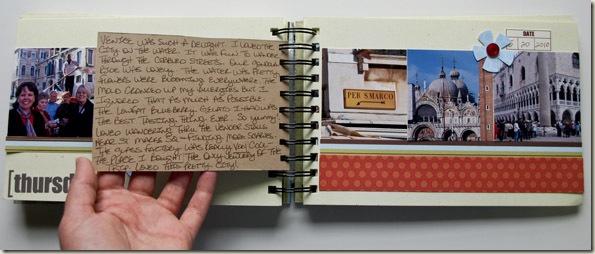 VENICE WAS SUCH A DELIGHT. I LOVED THE
CITY ON THE WATER. IT WAS FUN TO WANDER
THROUGH THE COBBLED STREETS. OUR GONDOLA
RIDE WAS LOVELY. THE WATER WAS PRETTY.
FLOWERS WERE BLOOMING EVERYWHERE. THE
MOLD CRANKED UP MY ALLERGIES BUT I
IGNORED THAT AS MUCH AS POSSIBLE.
THE BLUEBERRY GELATO I HAD WAS
THE BEST TASTING THING EVER. SO YUMMY.
LOVED WANDERING THRU THE VENDOR STALLS
NEAR ST. MARCOS SQ - FINDING MORE SCARVES.
THE GLASS FACTORY WAS REALLY VERY COOL -
THE PLACE I BOUGHT THE ONLY JEWELRY OF THE
TRIP. LOVED THIS PRETTY CITY!
[thursd
PER S. MARCO
DATE
20 2010